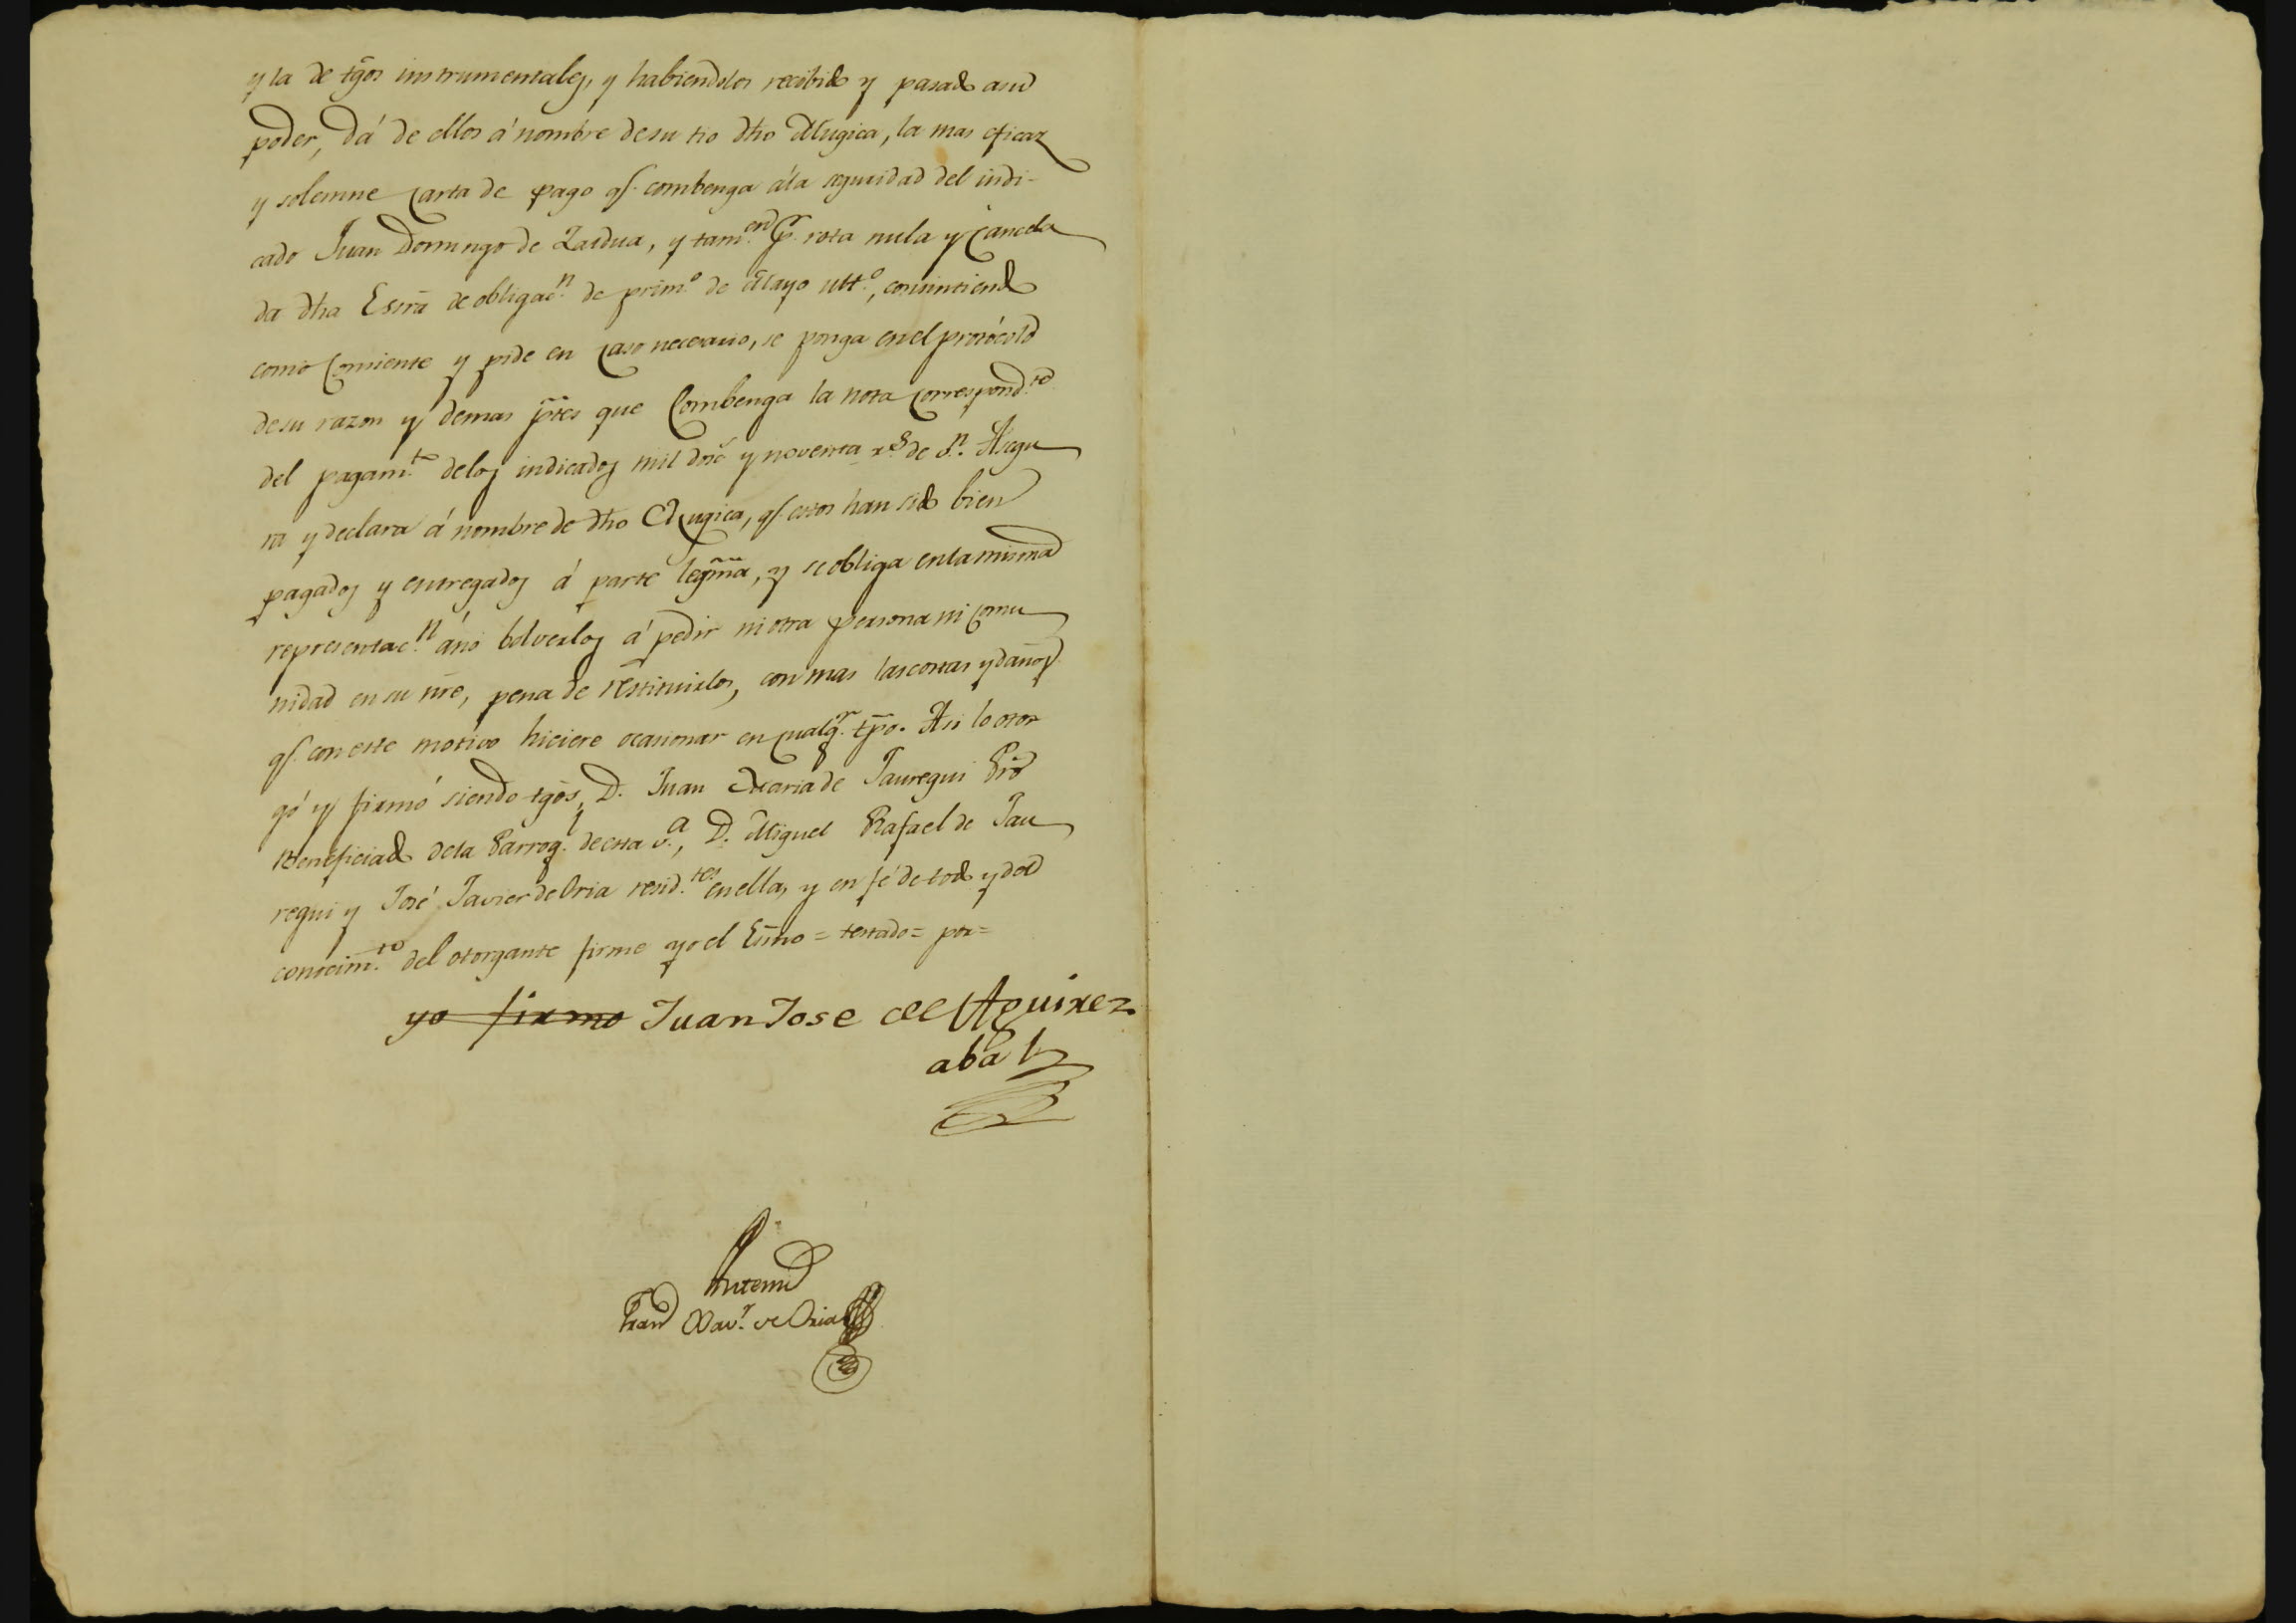 y la de tgos instrumentales, y habiendolos recibido y pasado asu
poder, dá de ellos á nombre desu tio dho Mugica, la mas eficaz
y solemne carta de pago q.e combenga ála seguridad del indi-
cado Juan Domingo de Zardua, y tam.en p.r rota nula y cancela
da dha Esrra de obligac.n de prim.o de Mayo ult.o, consintiendo
como consiente y pide en caso necesario, se ponga en el protócolo
desu razon y demas ptes que combenga la nota correspond.te
del pagam.to delos indicados mil dosc.s y noventa r.s de v.n Asegu
ra y declara á nombre de dho Mugica, q.e estos han sido bien
pagados y entregados á parte legma, y se obliga enla misma
representac.n áno bolverlos á pedir ni otra persona ni comu
nidad en su nre, pena de restituirlos, con mas las costas y daños
q.e con este motivo hiciere ocasionar en qualq.r tpo. Asi lo otor
gó y firmó siendo tgos, D. Juan Maria de Jauregui Pro
Beneficiado dela Parroq.l de esta v.a, D. Miguel Rafael de Jau
regui y José Javier de Oria resid.tes en ella, y en fé de todo y del
conocim.to del otorgante firme yo el Esno = testado = por =
yo firmo Juan Jose de Aguirez
abal
Antemi
Fran.co Xav.r de Oria